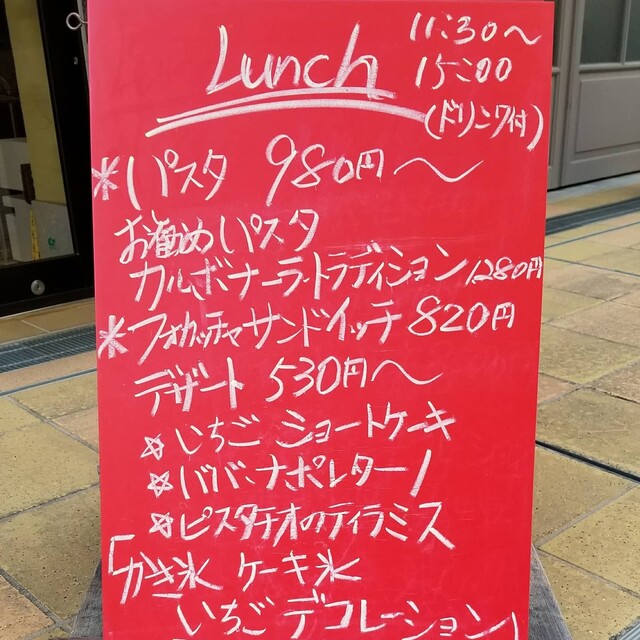 Lunch 11:30〜
15:00
(ドリンク付)
*パスタ 980円〜
お勧めパスタ
カルボナーラ・トラディション 1280円
*フォカッチャサンドイッチ 820円
デザート 530円〜
☆いちごショートケーキ
☆ババ・ナポレターノ
☆ピスタチオのティラミス
「かき氷 ケーキ氷
いちごデコレーション」